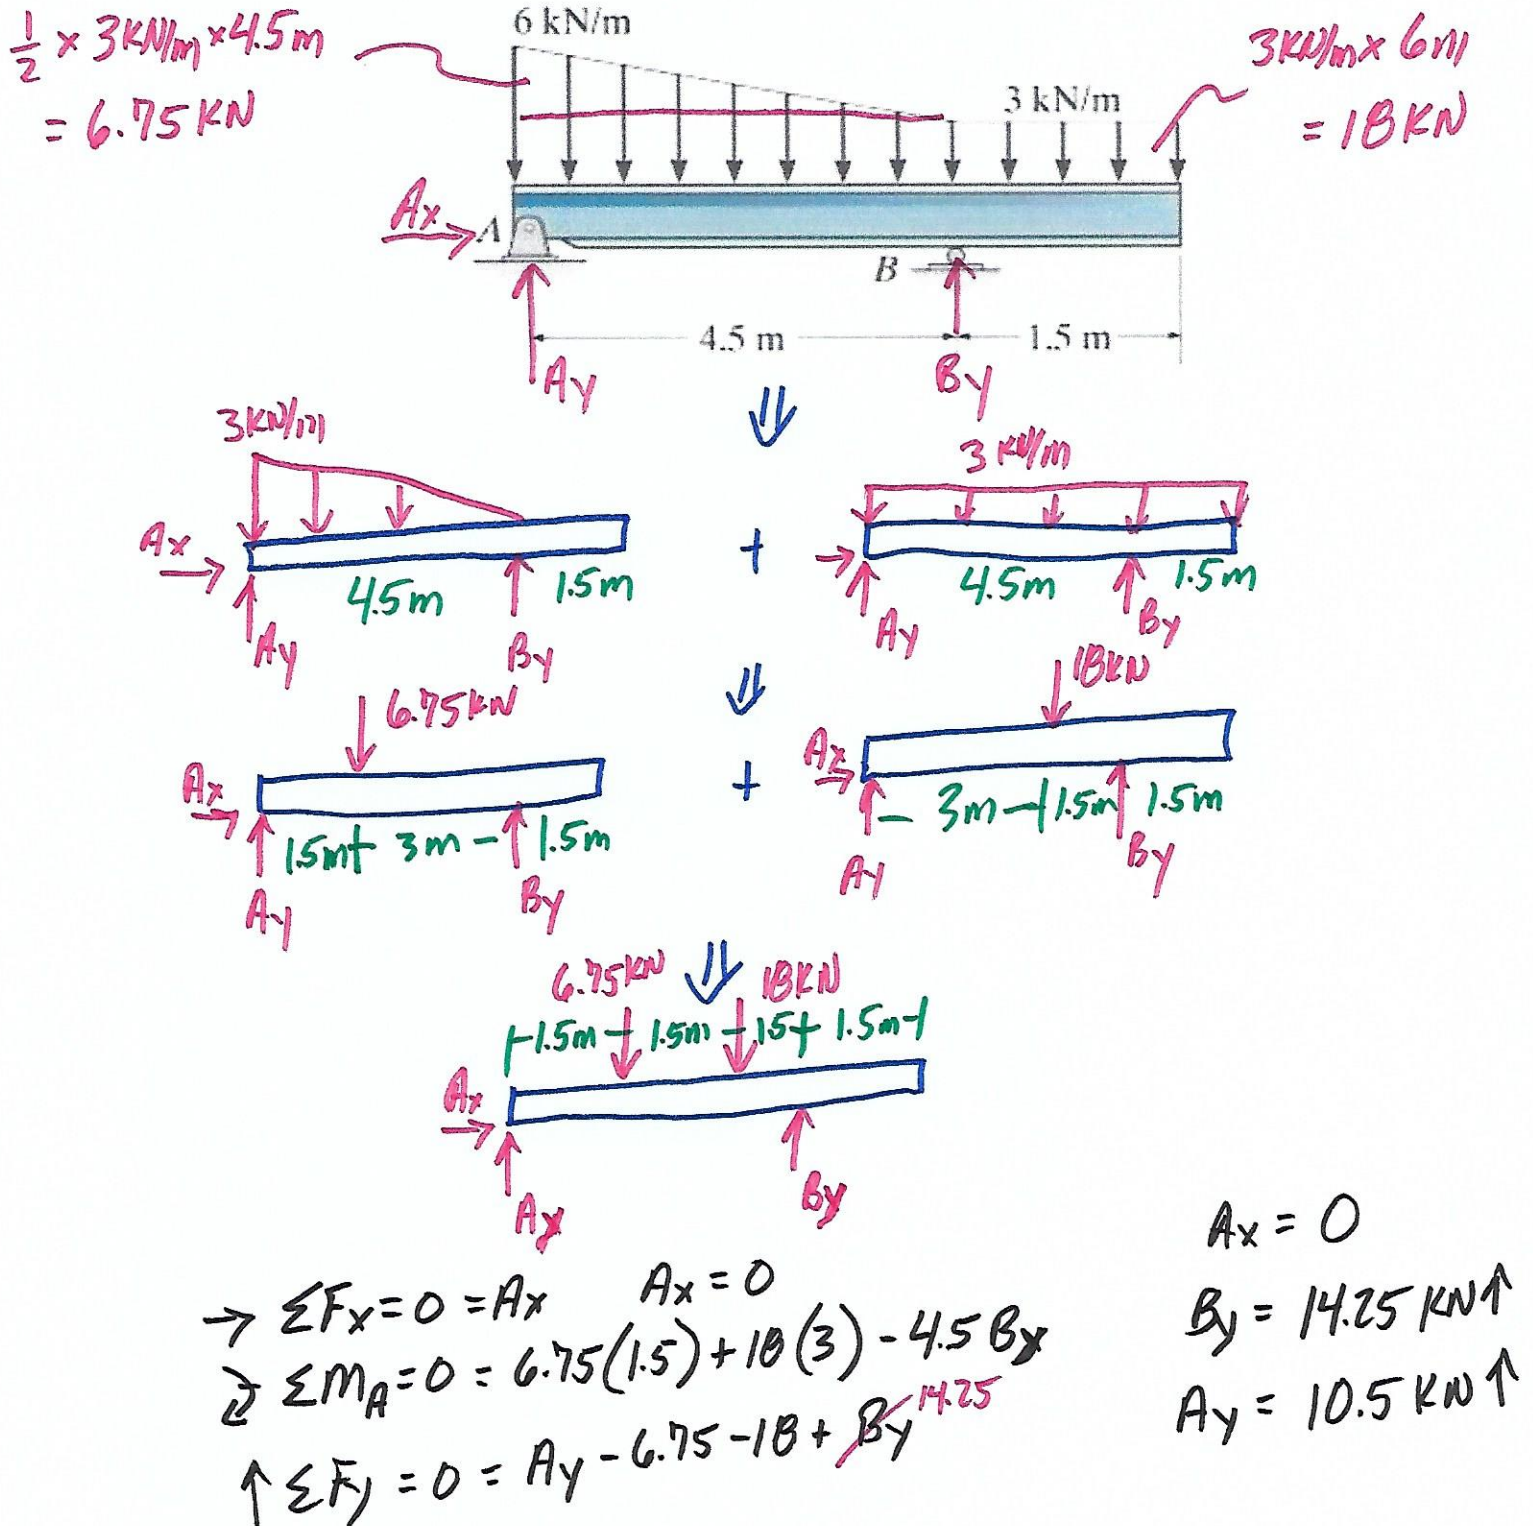 ½ × 3KN/m × 4.5m
= 6.75 KN
6 kN/m
3 kN/m
3KN/m × 6m
= 18 KN
Ax
A
B
4.5 m
1.5 m
Ay
By
⇓
3KN/m
Ax
4.5m
1.5m
Ay
By
+
3 KN/m
4.5m
1.5m
Ay
By
⇓
6.75KN
Ax
1.5m + 3m - 1.5m
Ay
By
+
18KN
Ax
- 3m - 1.5m 1.5m
Ay
By
⇓
6.75KN
18KN
1.5m 1.5m 1.5 1.5m
Ax
Ay
By
→ ΣFx = 0 = Ax Ax = 0
ΣMA = 0 = 6.75(1.5) + 18(3) - 4.5 By
↑ ΣFy = 0 = Ay - 6.75 - 18 + By 14.25
Ax = 0
By = 14.25 KN↑
Ay = 10.5 KN↑